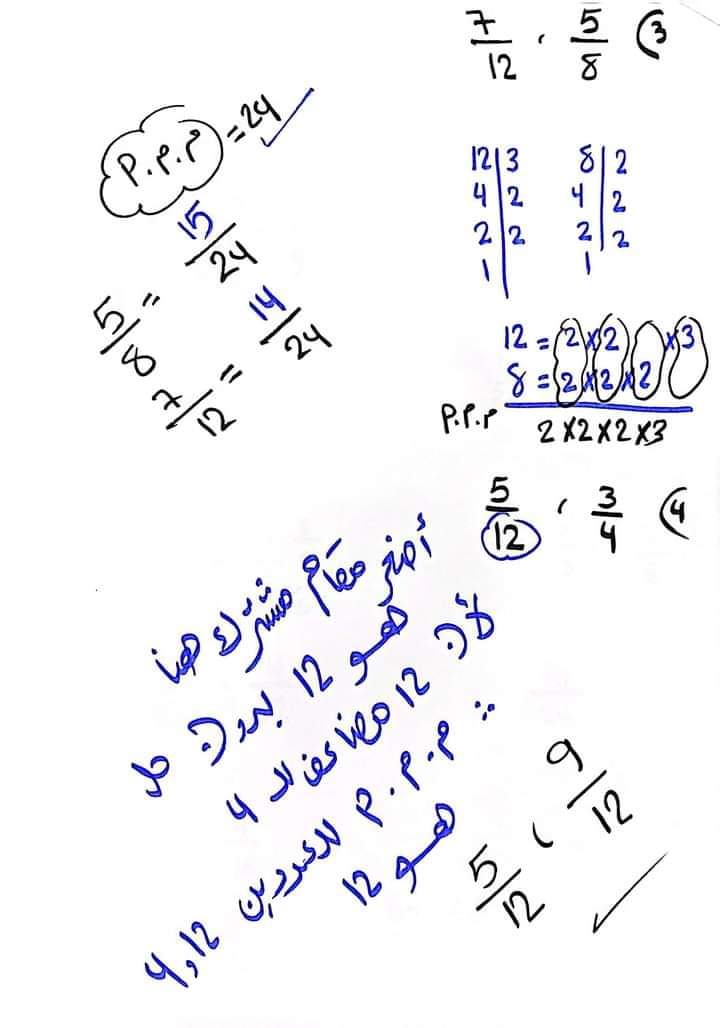 3) 5/8 ، 7/12
8 | 2
4 | 2
2 | 2
1
12 | 3
4 | 2
2 | 2
1
12 = 2×2 ×3
8 = 2×2×2
م.م.م 2×2×2×3
م.م.م = 24
5/8 = 15/24
7/12 = 14/24
4) 3/4 ، 5/12
أصغر مقام مشترك هنا
هو 12 بدون حل
لأن 12 مضاعف الـ 4
∴ م.م.م للعددين 4,12
هو 12
5/12 ، 9/12